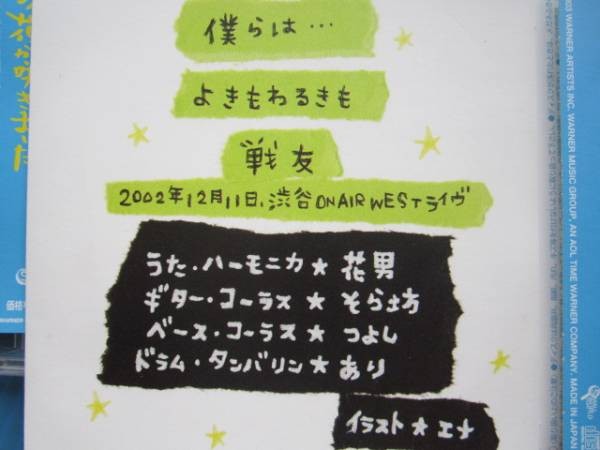 僕らは…
よきもわるきも
戦友
2002年12月11日、渋谷ON AIR WESTライヴ
うた・ハーモニカ★花男
ギター・コーラス★そら坊
ベース・コーラス★つよし
ドラム・タンバリン★あり
イラスト★エナ
花が咲きました
価格
2003 WARNER ARTISTS INC. WARNER MUSIC GROUP, AN AOL TIME WARNER COMPANY. MADE IN JAPAN